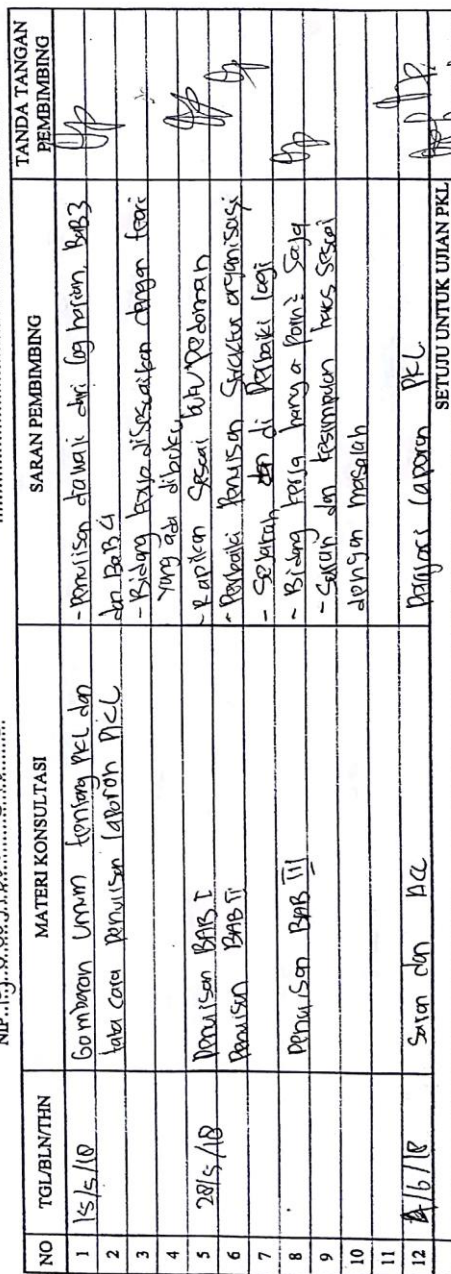 NIP.
NO TGL/BLN/THN MATERI KONSULTASI SARAN PEMBIMBING TANDA TANGAN PEMBIMBING
1 15/5/18 Gambaran Umum tentang PKL dan - Penulisan dari log harian, BAB3
2 tata cara penulisan laporan PKL dan BaB 4
3 - Bidang kerja disesuaikan dengan teori
4 yang ada dibuku
5 28/5/18 Penulisan BAB I - Rapikan sesuai buku Pedoman
6 Penulisan BAB II - Perbaiki Penulisan Struktur organisasi
7 - Sejarah di Perbaiki lagi
8 Penulisan BAB III - Bidang kerja hanya Point² Saja
9 - Saran dan kesimpulan harus sesuai
10 dengan masalah
11
12 4/6/18 Saran dan ACC laporan PKL
SETUJU UNTUK UJIAN PKL